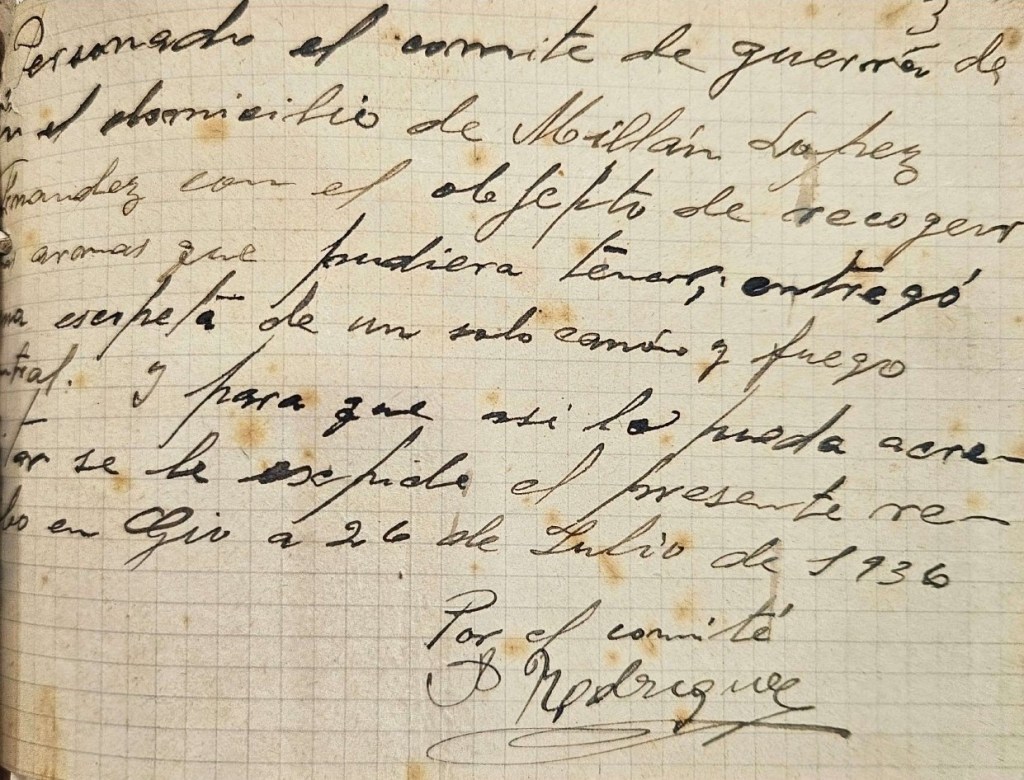 3
Personado el comite de guerra de
en el domicilio de Millán Lopez
rnandez con el objepto de recogerr
s armas que pudiera tener; entregó
na escopeta de un solo canóo y fuego
ntral. Y para que asi lo pueda acre-
itar se le expide el presente re-
bo en Gio a 26 de Julio de 1936
Por el comité
P Rodriguez